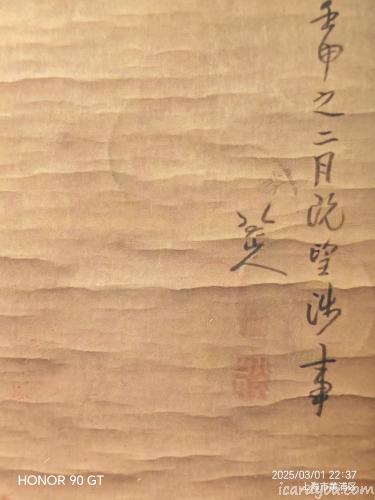 壬申之二月既望涉事
八大山人
HONOR 90 GT
2025/03/01 22:37
上海市黄浦区
icarayou.com